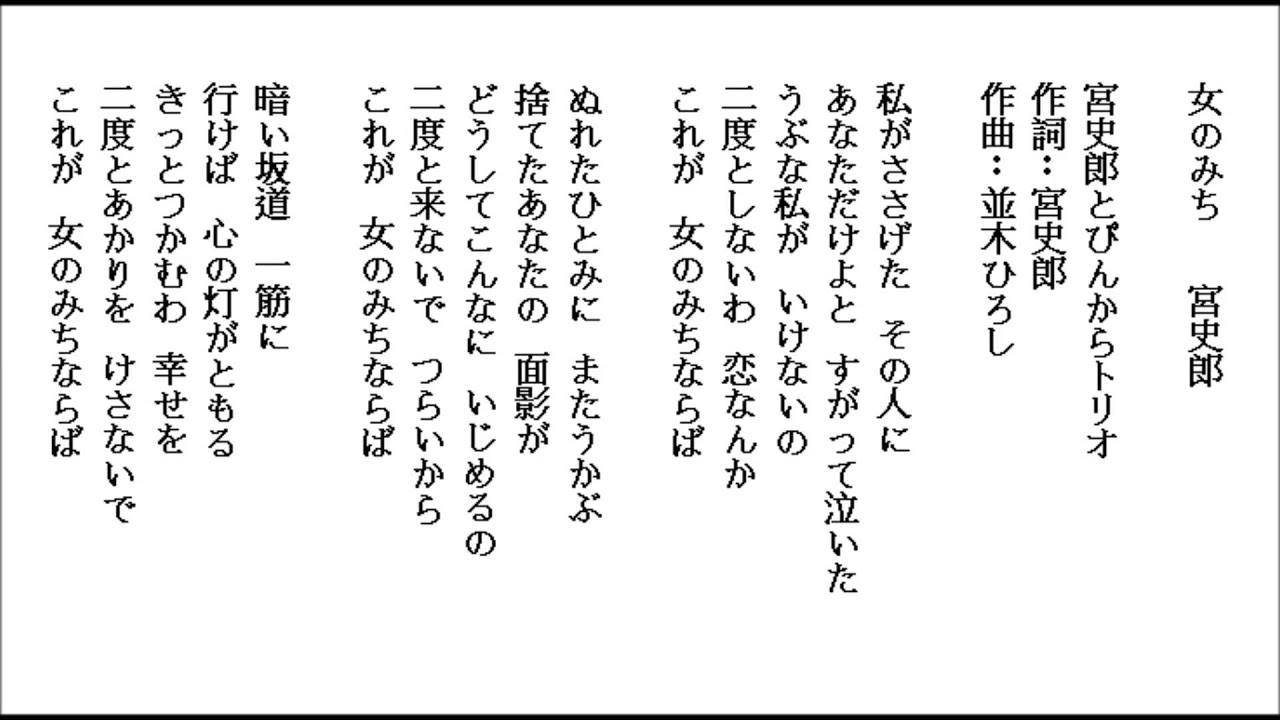 女のみち　宮史郎
宮史郎とぴんからトリオ
作詞：宮史郎
作曲：並木ひろし
私がささげた　その人に
あなただけよと　すがって泣いた
うぶな私が　いけないの
二度としないわ　恋なんか
これが　女のみちならば
ぬれたひとみに　またうかぶ
捨てたあなたの　面影が
どうしてこんなに　いじめるの
二度と来ないで　つらいから
これが　女のみちならば
暗い坂道　一筋に
行けば　心の灯がともる
きっとつかむわ　幸せを
二度とあかりを　けさないで
これが　女のみちならば